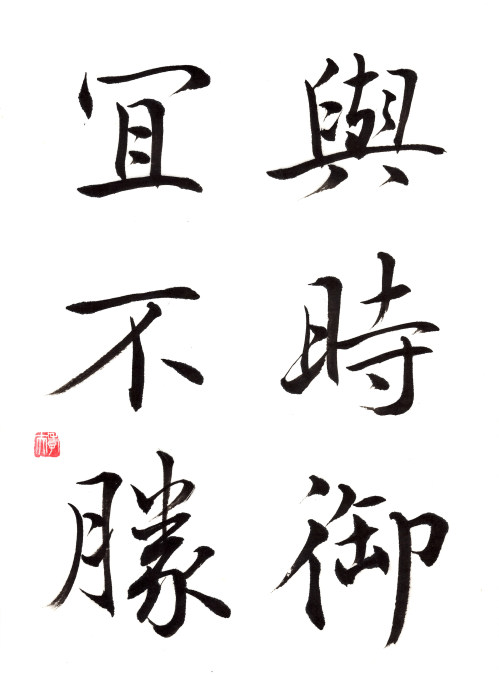 與時御
冝不勝